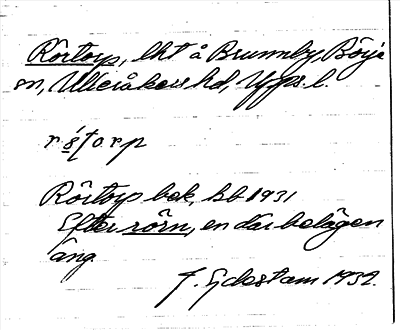 Rörtorp, lht å Brunnby, Börje
sn, Ulleråkers hd, Upps. l.
Rörtorp bok, kb 1931
Efter rörn, en där belägen
äng
F. Edestam 1932.